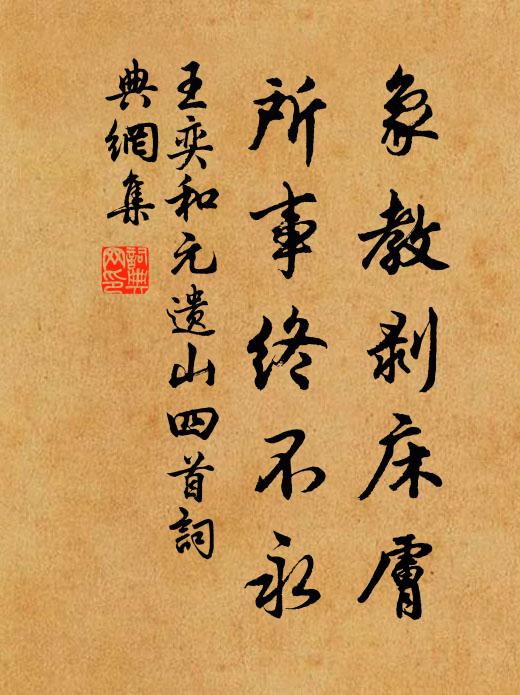 象教剥床膚
所事終不永
王奕和元遺山四首詞
典網集
詞典網印